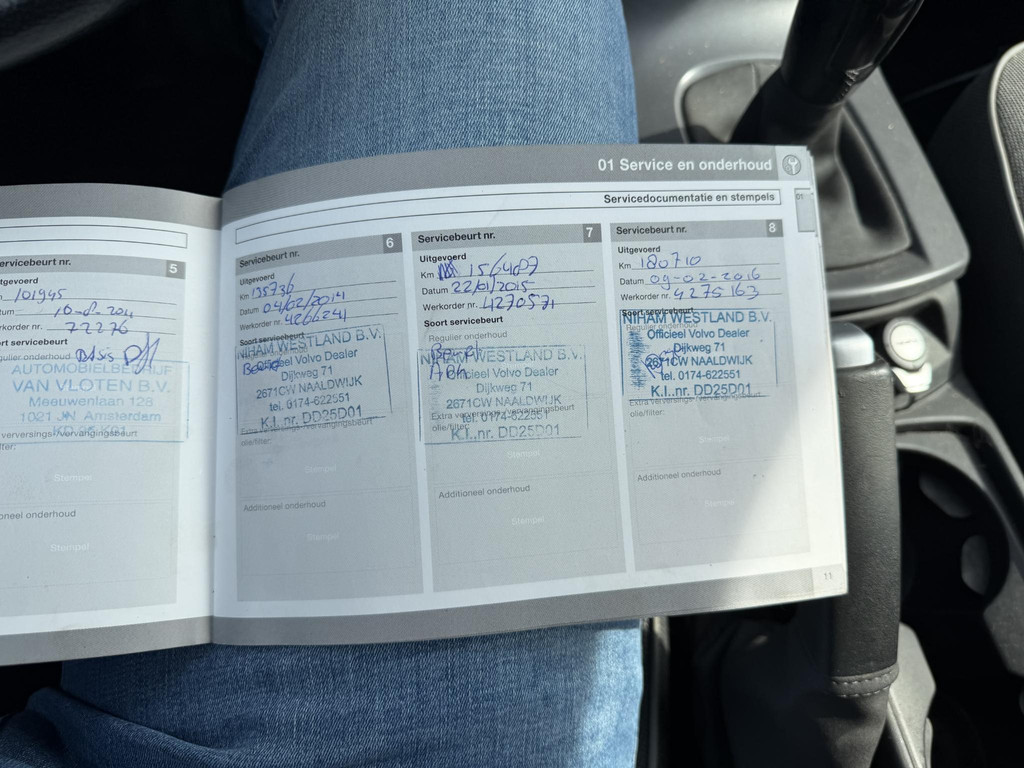 01 Service en onderhoud
Servicedocumentatie en stempels
01
ervicebeurt nr. 5
itgevoerd
101945
tum
Werkorder nr. 72276
ort servicebeurt
gulier onderhoud Basis
AUTOMOBIELBEDRIJF
VAN VLOTEN B.V.
Meeuwenlaan 128
1021 JN Amsterdam
verversings-/vervangingsbeurt
lter:
Stempel
oneel onderhoud
Stempel
Servicebeurt nr. 6
Uitgevoerd
Km 135736
Datum 04/02/2014
Werkorder nr. 4266241
Soort servicebeurt
NIHAM WESTLAND B.V.
Officieel Volvo Dealer
Dijkweg 71
2671CW NAALDWIJK
tel. 0174-622551
K.I..nr. DD25D01
Extra verversings-/vervangingsbeurt
olie/filter:
Stempel
Additioneel onderhoud
Stempel
Servicebeurt nr. 7
Uitgevoerd
Km
Datum 22/01/2015
Werkorder nr. 4270571
Soort servicebeurt
Regulier onderhoud
NIHAM WESTLAND B.V.
Officieel Volvo Dealer
Dijkweg 71
2671CW NAALDWIJK
tel. 0174-622551
K.I..nr. DD25D01
Extra verversings-/vervangingsbeurt
olie/filter:
Stempel
Additioneel onderhoud
Stempel
Servicebeurt nr. 8
Uitgevoerd
Km 180710
Datum 09-02-2016
Werkorder nr. 4275163
Soort servicebeurt
Regulier onderhoud
NIHAM WESTLAND B.V.
Officieel Volvo Dealer
Dijkweg 71
2671CW NAALDWIJK
tel. 0174-622551
K.I..nr. DD25D01
Extra verversings-/vervangingsbeurt
olie/filter:
Stempel
Additioneel onderhoud
Stempel
11